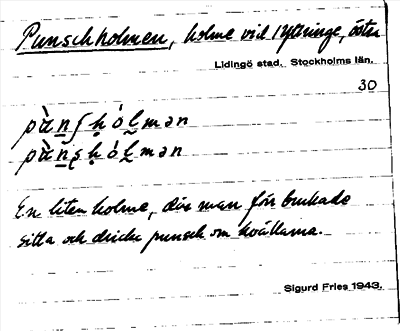 Punschholmen, holme vid Yttringe, öster
Lidingö stad. Stockholms län.
30
pùnʃhólmən
pùnʂhólmən
En liten holme, där man förr brukade
sitta och dricka punsch om kvällarna.
Sigurd Fries 1943.